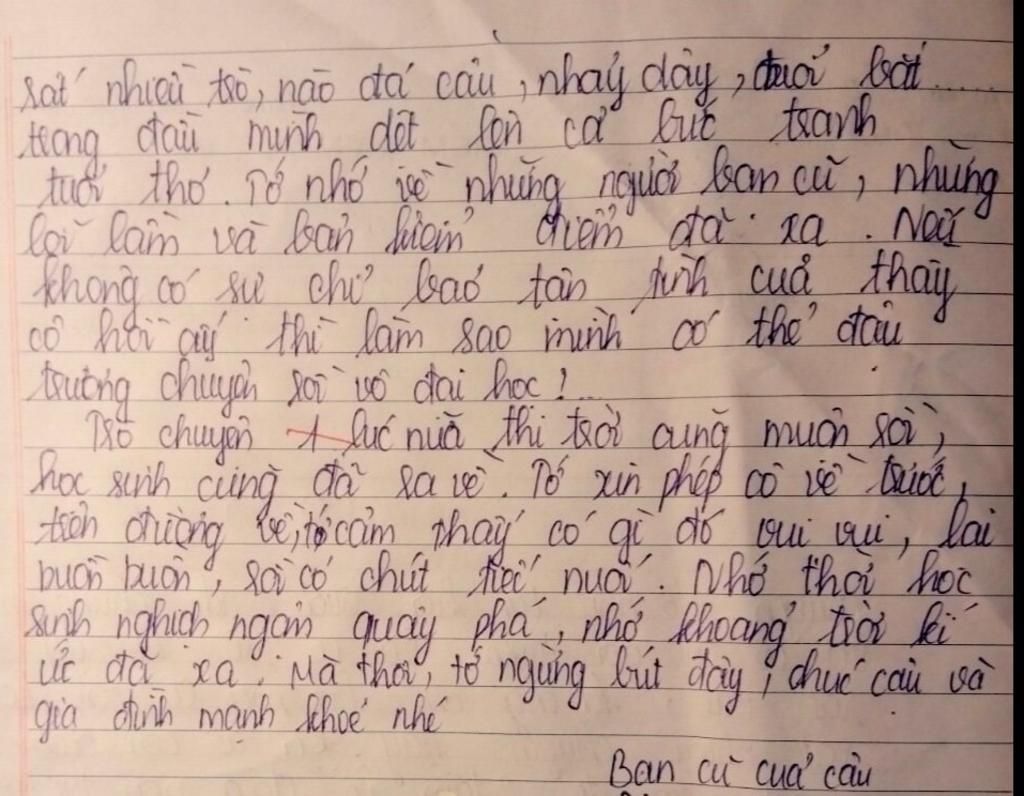 rất nhiều trò, nào đá cầu, nhảy dây, đuổi bắt.....
trong đầu mình dệt lên cả bức tranh
tuổi thơ. Tớ nhớ về những người bạn cũ, những
lỗi lầm và bản kiểm điểm đã xa. Nếu
không có sự chỉ bảo tận tình của thầy
cô hồi ấy thì làm sao mình có thể đậu
trường chuyên rồi vô đại học!...
Trò chuyện 1 lúc nữa thì trời cũng muộn rồi,
học sinh cũng đã ra về. Tớ xin phép cô về trước,
trên đường về, tớ cảm thấy có gì đó vui vui, lại
buồn buồn, rồi có chút tiếc nuối. Nhớ thời học
sinh nghịch ngợm quậy phá, nhớ khoảng trời kí
ức đã xa. Mà thôi, tớ ngừng bút đây, chúc cậu và
gia đình mạnh khoẻ nhé
Bạn cũ của cậu